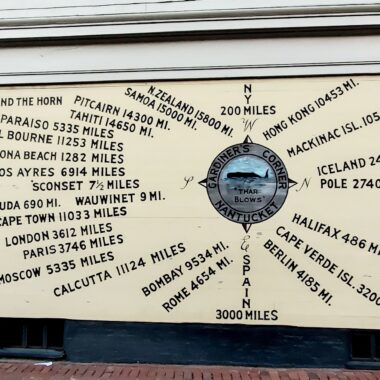 ND THE HORN
PARAISO 5335 MILES
L BOURNE 11253 MILES
ONA BEACH 1282 MILES
OS AYRES 6914 MILES
'SCONSET 7½ MILES
UDA 690 MI. WAUWINET 9 MI.
CAPE TOWN 11033 MILES
LONDON 3612 MILES
PARIS 3746 MILES
MOSCOW 5335 MILES
CALCUTTA 11124 MILES
BOMBAY 9534 MI.
ROME 4654 MI.
PITCAIRN 14300 MI.
TAHITI 14650 MI.
N. ZEALAND 15800 MI.
SAMOA 15000 MI.
NY
200 MILES
W
S
N
E
GARDINER'S CORNER
"THAR
BLOWS"
NANTUCKET
SPAIN
3000 MILES
HONG KONG 10453 MI.
MACKINAC ISL. 105
ICELAND 24
POLE 2740
HALIFAX 486 M
CAPE VERDE ISL. 3200
BERLIN 4185 MI.